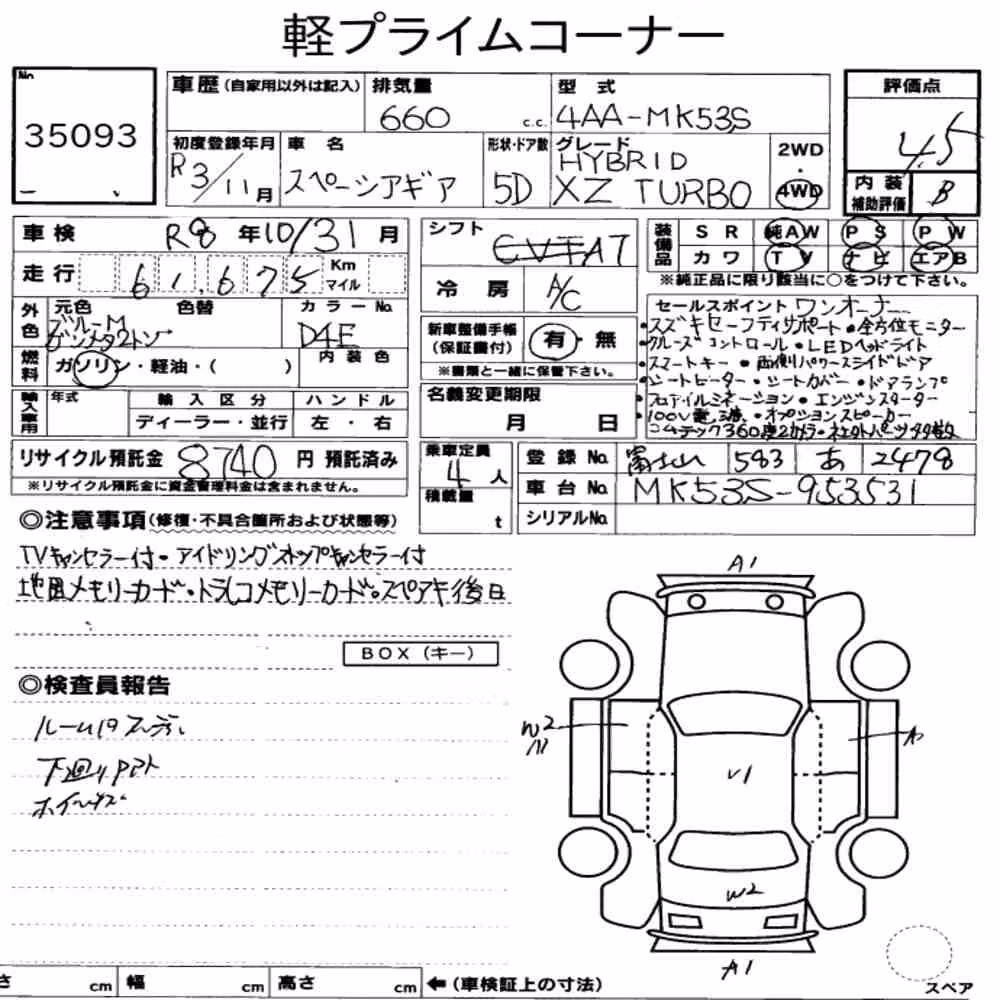 軽プライムコーナー
No
35093
車歴(自家用以外は記入) 排気量 660 c.c. 型式 4AA-MK53S
初度登録年月 R3/11月 車名 スペーシアギア 形状・ドア数 5D グレード HYBRID XZ TURBO 2WD・4WD
評価点 4.5
内装補助評価 B
車検 R8年10/31月
走行 61,675 Km マイル
外色 元色 色替 カラーNo. D4E
ガンメタ2トン
燃料 ガソリン・軽油・( ) 内装色
輸入車用 年式 輸入区分 ハンドル
ディーラー・並行 左・右
リサイクル預託金 8740 円 預託済み
※リサイクル預託金に資金管理料金は含まれません。
シフト CVT AT
冷房 A/C
新車整備手帳(保証書付) 有・無
※書類と一緒に保管下さい。
名義変更期限
月 日
乗車定員 4人
積載量 t
装備品 SR 純AW PS PW
カワ TV ナビ エアB
※純正品に限り該当に○をつけて下さい。
セールスポイント ワンオーナー
・スズキセーフティサポート・全方位モニター
・クルーズコントロール・LEDヘッドライト
・スマートキー・両側パワースライドドア
・シートヒーター・シートカバー・ドアランプ
・フロアイルミネーション・エンジンスターター
・100V電源・オプションスピーカー
コムテック360度カメラ・社外パーツ多数
登録No. 富士山 583 あ 2478
車台No. MK53S-953531
シリアルNo.
◎注意事項(修復・不具合箇所および状態等)
TVキャンセラー付・アイドリングストップキャンセラー付
地図メモリーカード・ドラレコメモリーカード・スペアキ後日
BOX(キー)
◎検査員報告
下回りPアト
A1
W2
A
V1
W2
A1
スペア
さ cm 幅 cm 高さ cm ←(車検証上の寸法)